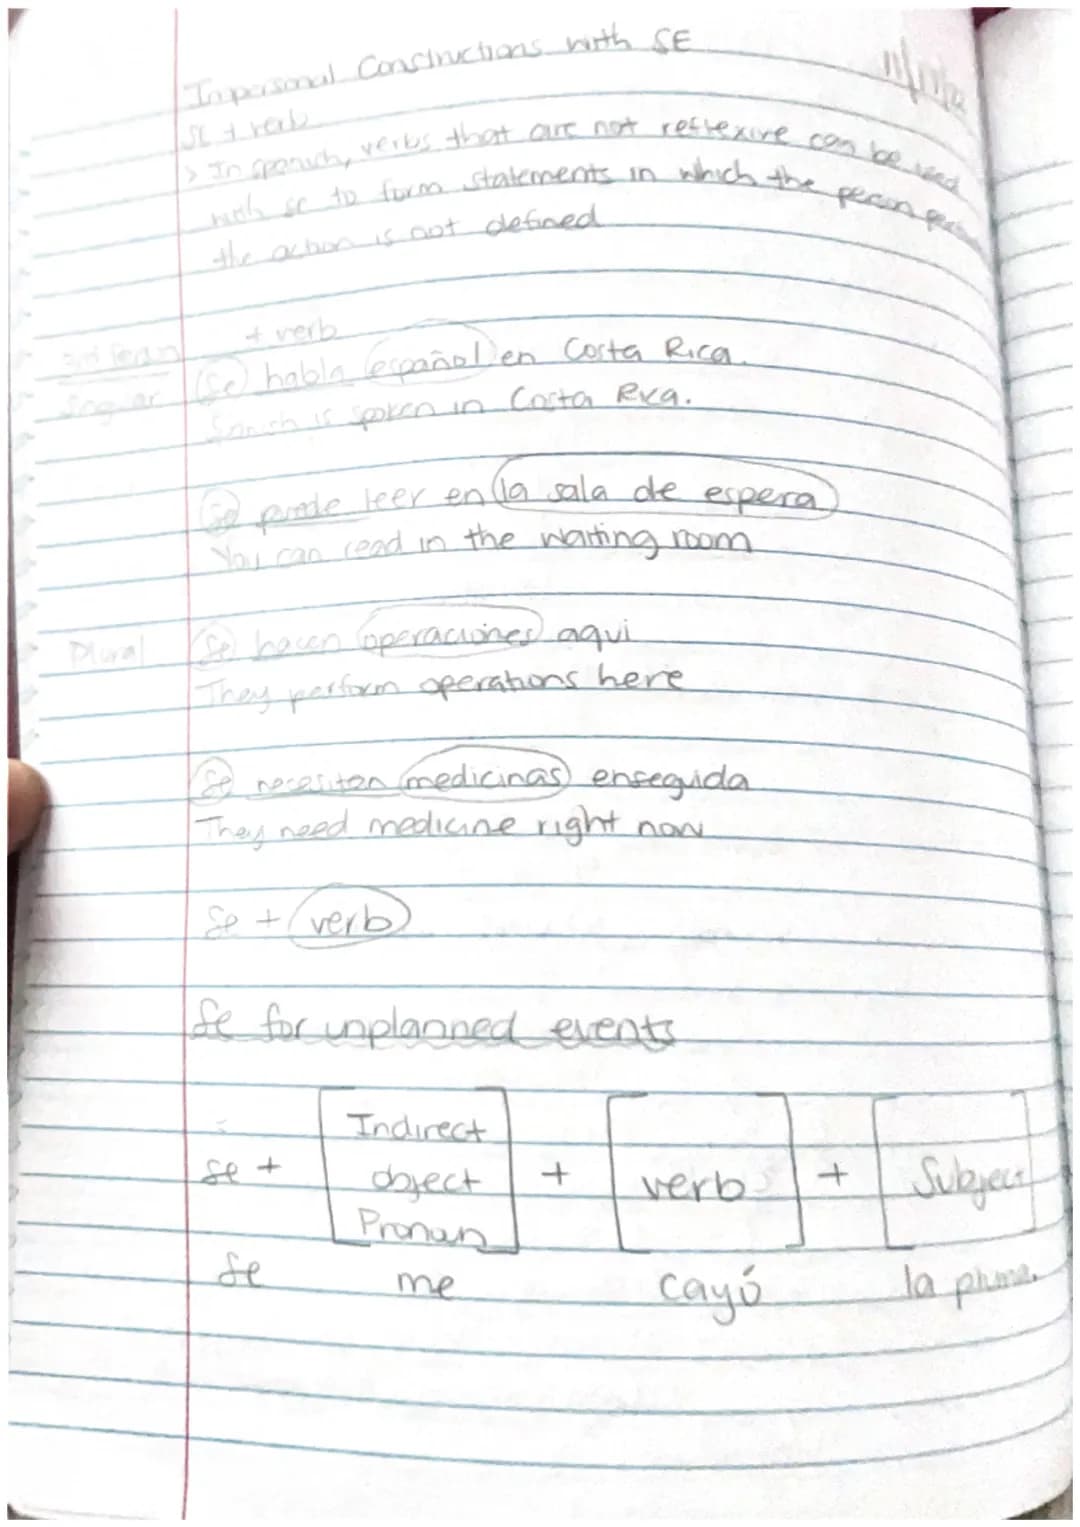 Impersonal Constructions with SE
se + verb
> In spanish, verbs that are not reflexive can be used
with se to form statements in which the person
the action is not defined
+ verb
3rd Person Se habla español en Costa Rica.
Singular
is spoken in Costa Rica.
Se puede leer en la sala de espera
You can read in the waiting room
Plural Se hacen operaciones aqui
They perform operations here
Se necesitan medicinas enseguida
They need medicine right now
Se + verb
Se for unplanned events
se + Indirect object Pronoun + verb + Subject
Se me cayó la pluma.